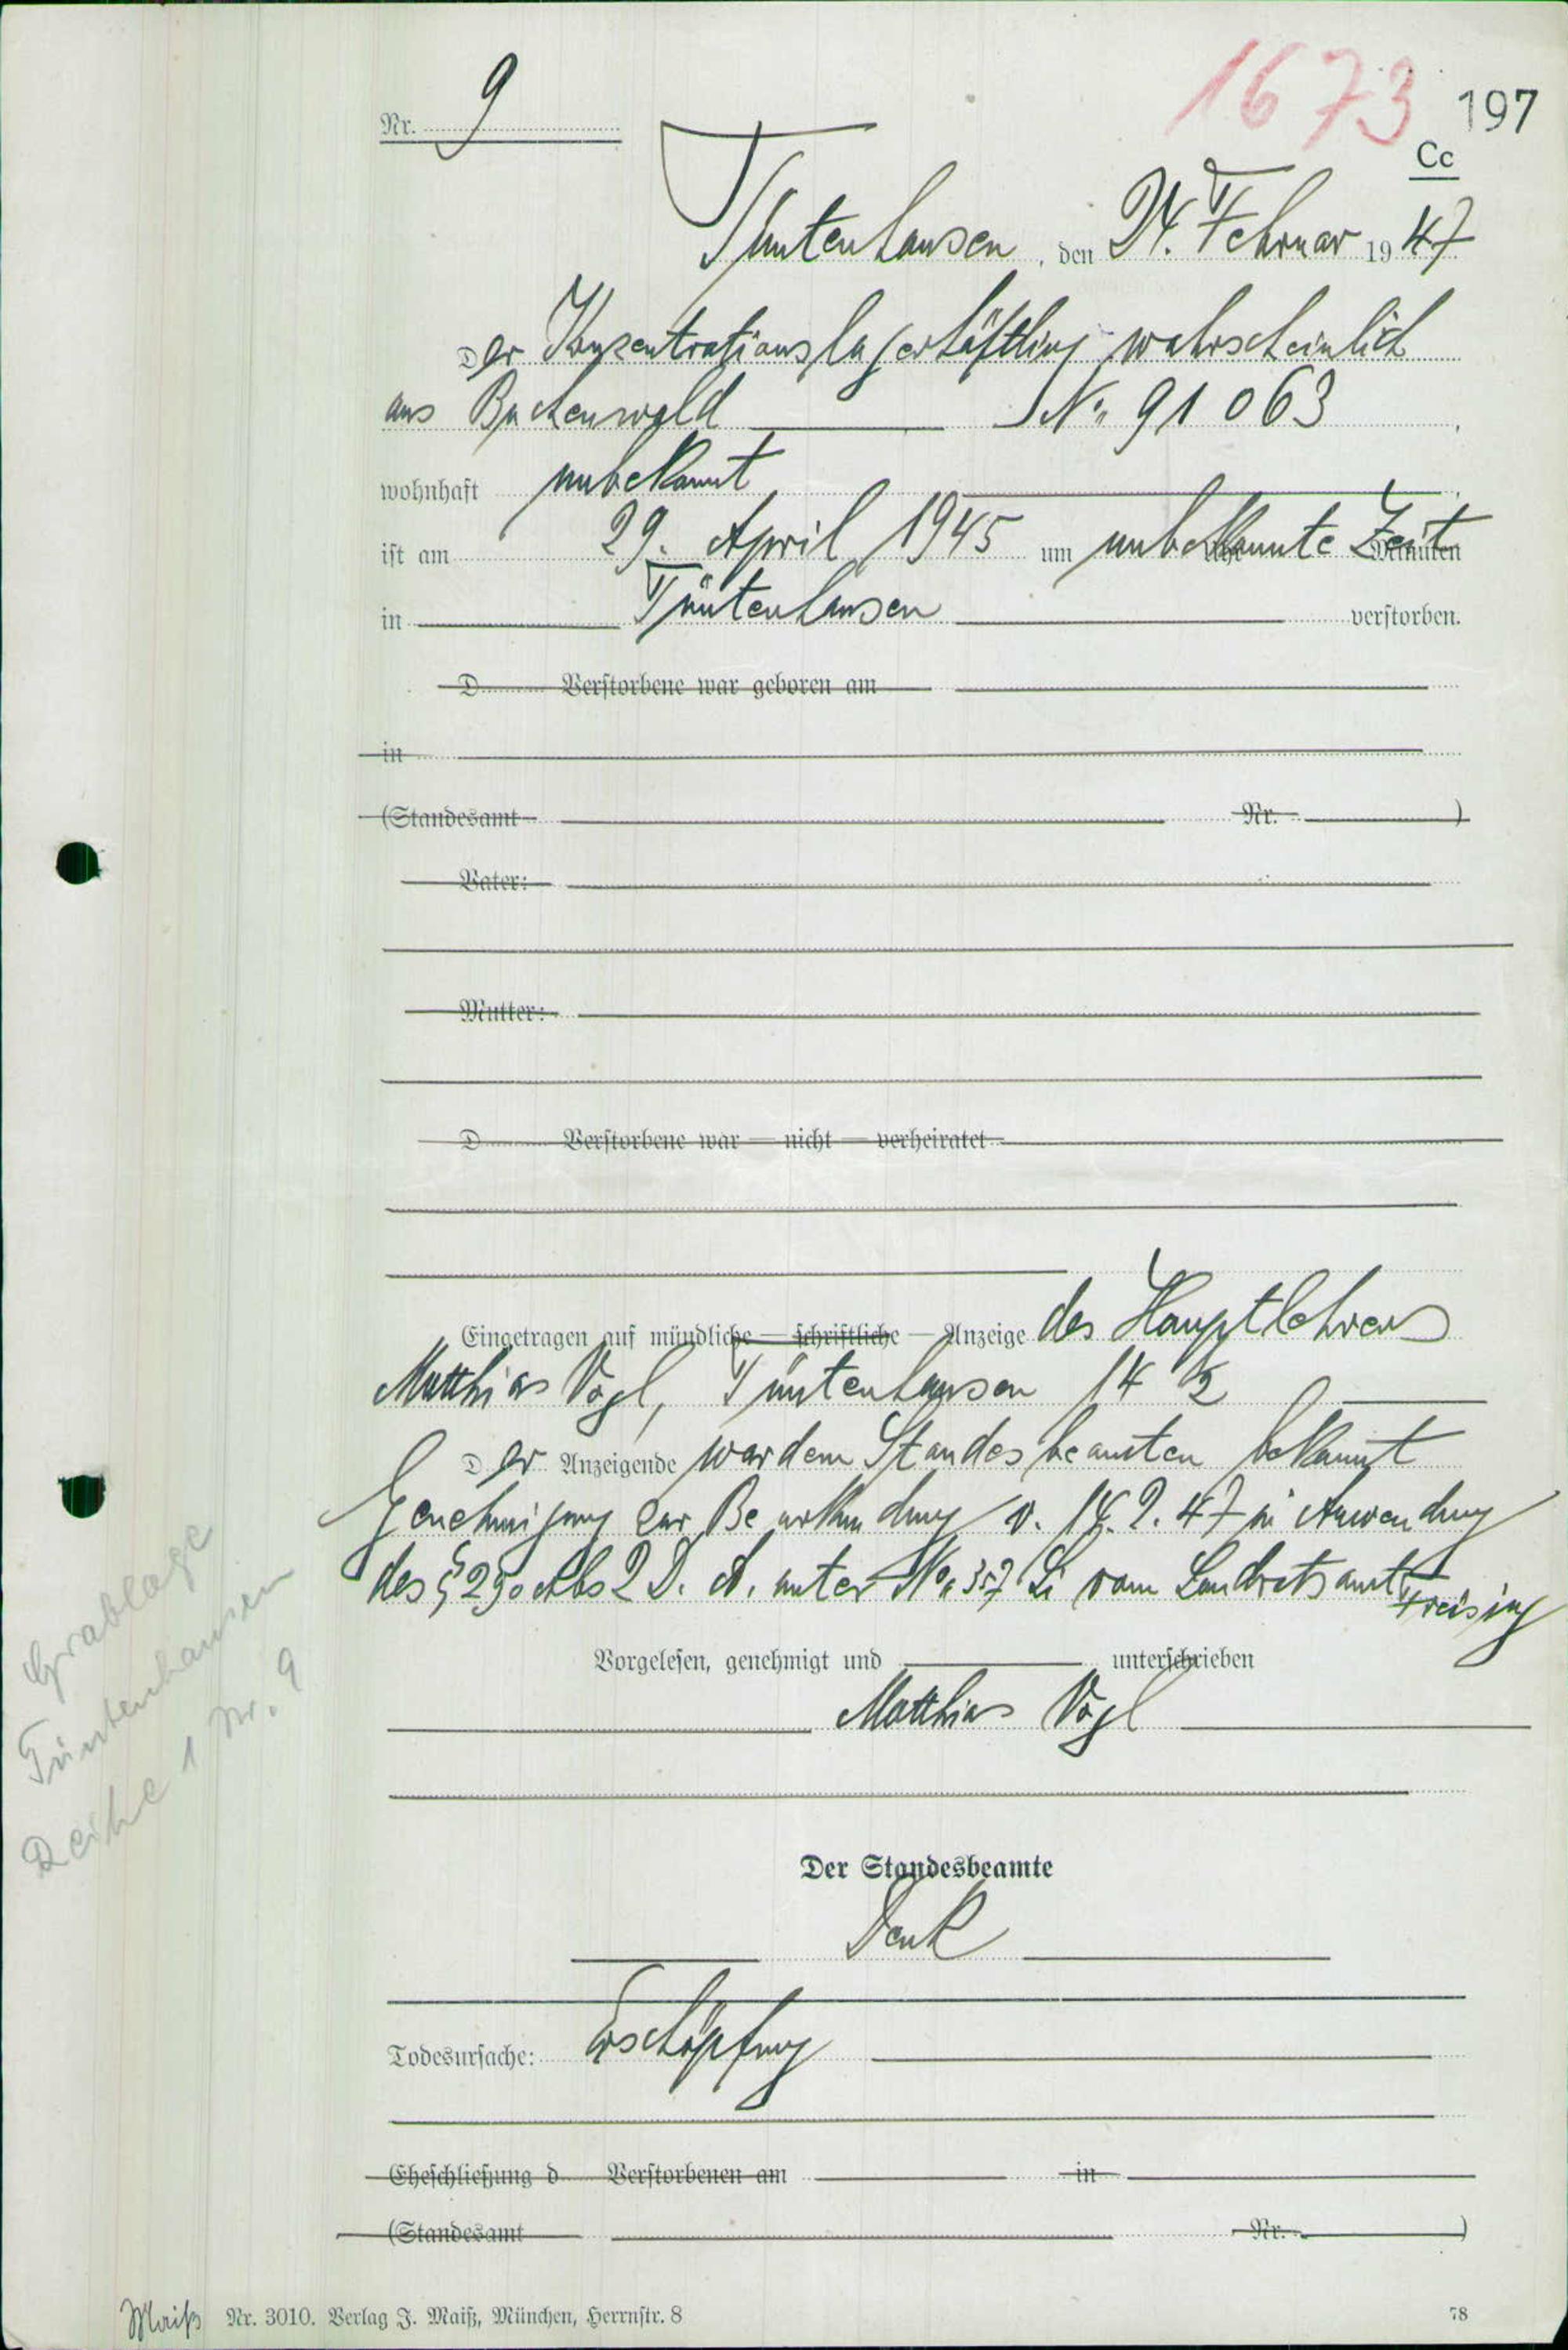 1673
197
Cc
Nr. 9
Tüntenhausen, den 24. Februar 1947
Der Konzentrationslagerhäftling wahrscheinlich
aus Buchenwald No. 91 063
wohnhaft unbekannt
ist am 29. April 1945 um unbekannte Zeit Uhr Minuten
in Tüntenhausen verstorben.
D Verstorbene war geboren am
in
(Standesamt Nr. )
Vater:
Mutter:
D Verstorbene war — nicht — verheiratet
Eingetragen auf mündliche — schriftliche — Anzeige des Hauptlehrers
Matthias Vogl, Tüntenhausen 14 ½
Der Anzeigende war dem Standesbeamten bekannt
Genehmigung zur Beurkundung v. 14.2.47 in Anwendung
des § 290 Abs 2 D. A. unter No. 357 Li vom Landratsamt Freising
Vorgelesen, genehmigt und unterschrieben
Matthias Vogl
Grablage
Tüntenhausen
Reihe 1 Nr. 9
Der Standesbeamte
Denk
Todesursache: Erschöpfung
Eheschließung d Verstorbenen am in
(Standesamt Nr. )
Maiß Nr. 3010. Verlag J. Maiß, München, Herrnstr. 8
78